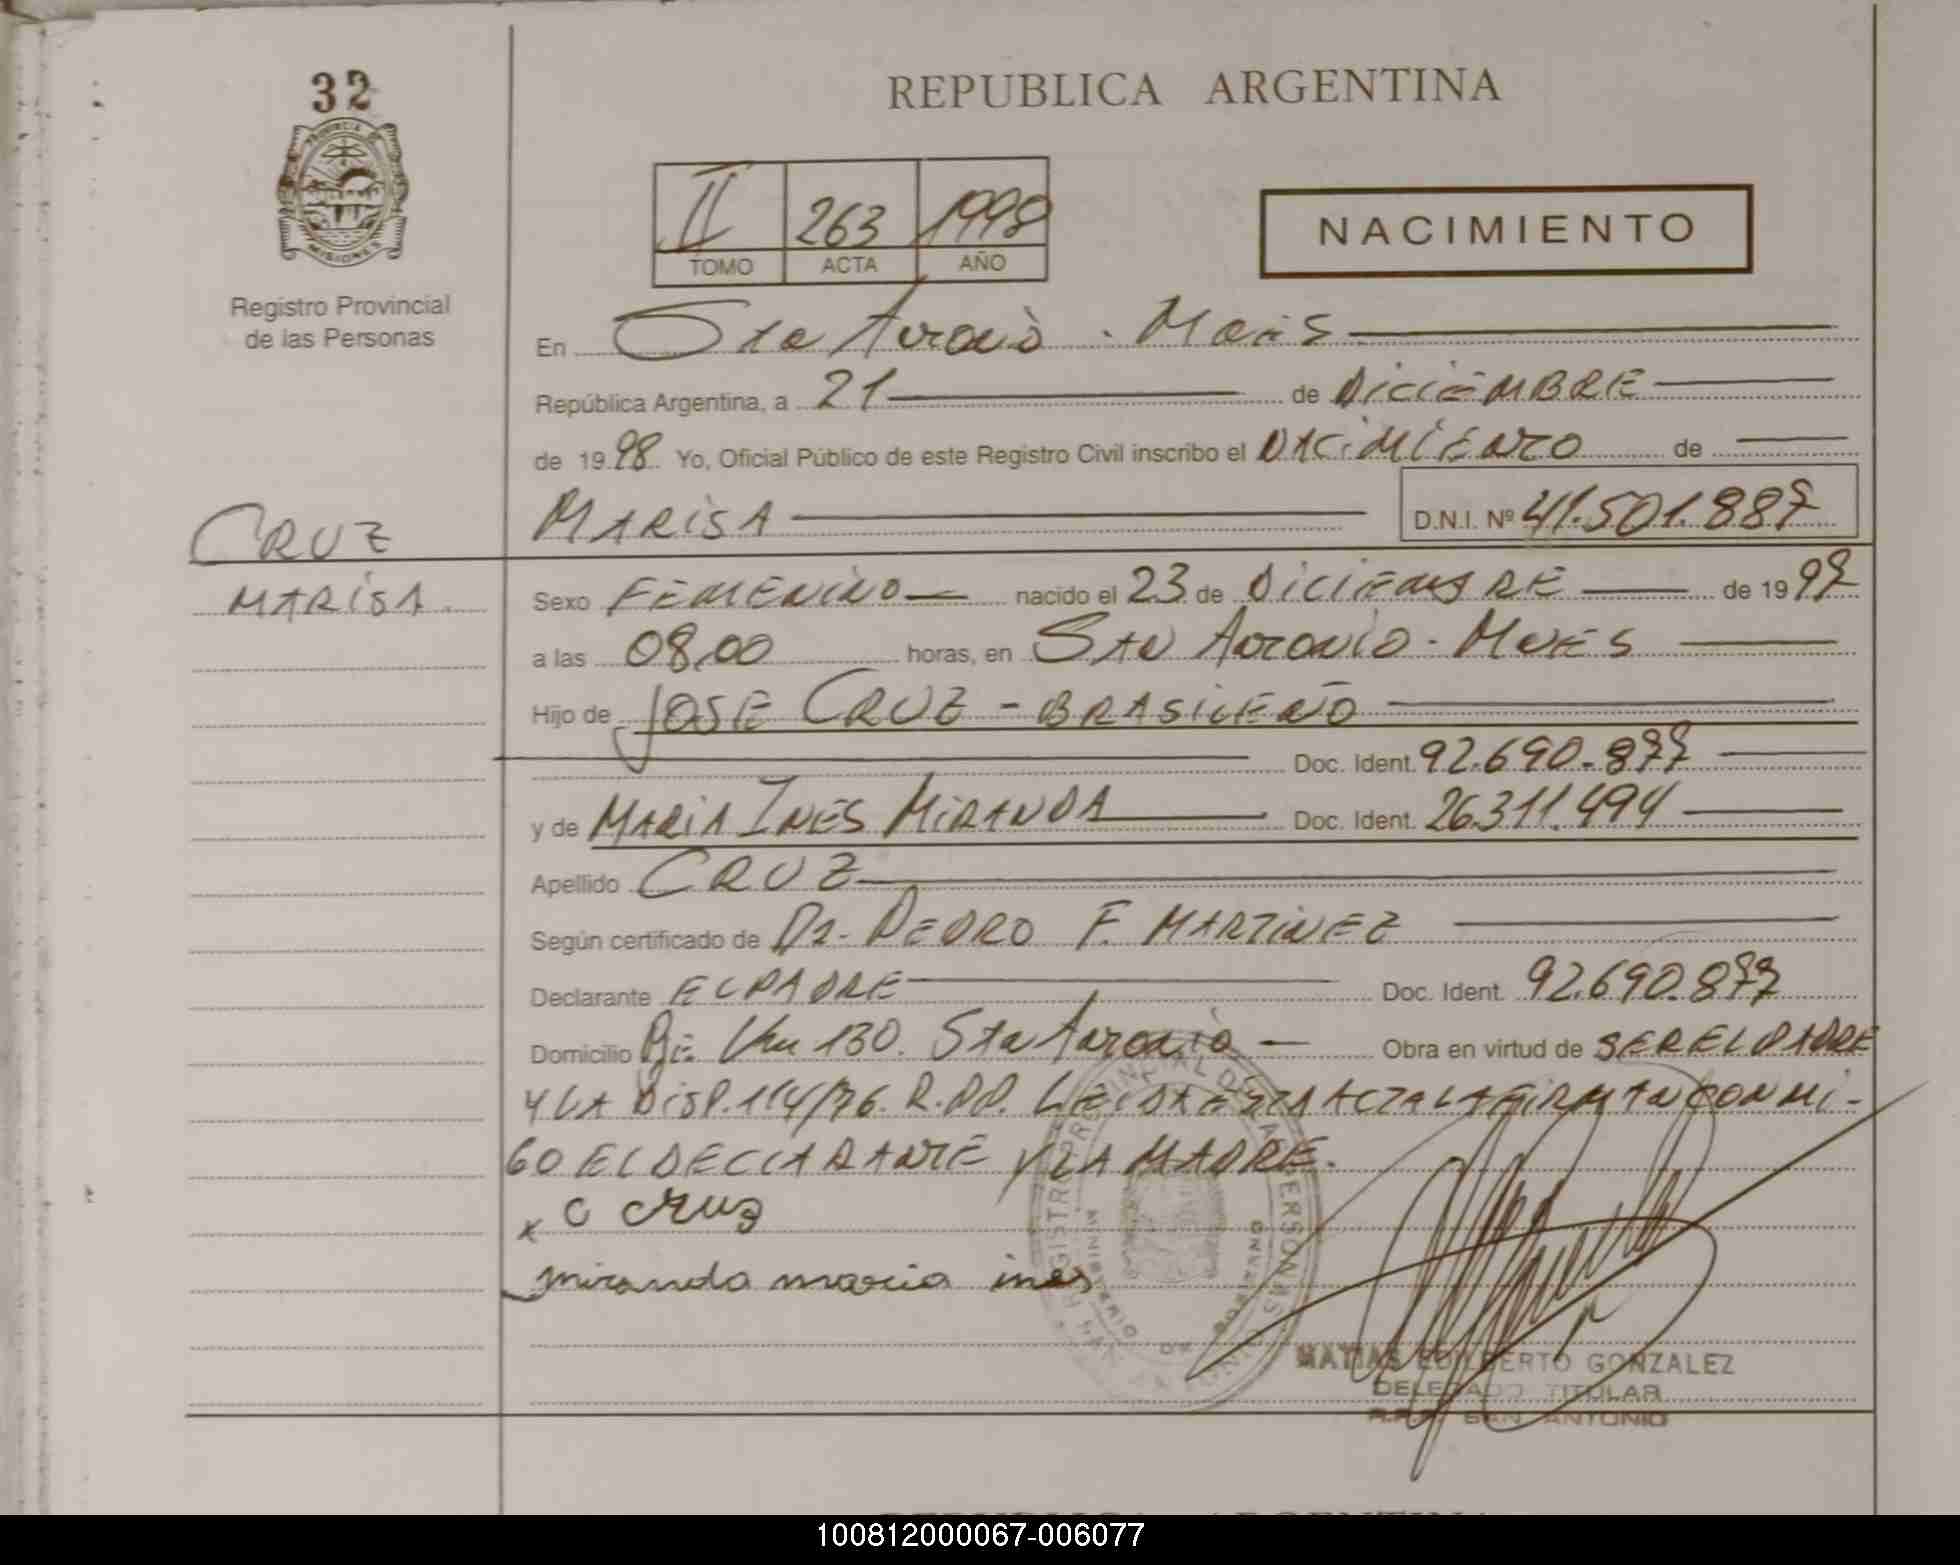 32
PROVINCIA DE
MISIONES
Registro Provincial
de las Personas
REPUBLICA ARGENTINA
II 263 1998
TOMO ACTA AÑO
NACIMIENTO
En San Antonio - Mnes
República Argentina, a 21 de DICIEMBRE
de 1998 Yo, Oficial Público de este Registro Civil inscribo el NACIMIENTO de
MARISA D.N.I. Nº 41.501.887
CRUZ
MARISA.
Sexo FEMENINO nacido el 23 de DICIEMBRE de 1997
a las 08,00 horas, en SAN ANTONIO - MNES
Hijo de JOSE CRUZ - BRASILEÑO
Doc. Ident. 92.690.877
y de MARIA INES MIRANDA Doc. Ident. 26.311.494
Apellido CRUZ
Según certificado de Dr. PEDRO F. MARTINEZ
Declarante EL PADRE Doc. Ident. 92.690.877
Domicilio Km 130. San Antonio Obra en virtud de SER EL PADRE
Y LA DISP. 114/76. R.P.P. LEIDA ESTA ACTA LA FIRMAN CONMI-
GO EL DECLARANTE Y LA MADRE.
x C cruz
miranda maria ines
MATIAS EDILBERTO GONZALEZ
DELEGADO TITULAR
R.P.P. SAN ANTONIO
100812000067-006077